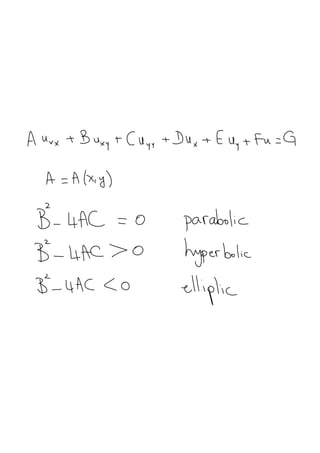 A uₓₓ + B uₓᵧ + C uᵧᵧ + D uₓ + E uᵧ + Fu = G
A = A(x,y)
B² - 4AC = 0 parabolic
B² - 4AC > 0 hyperbolic
B² - 4AC < 0 elliptic